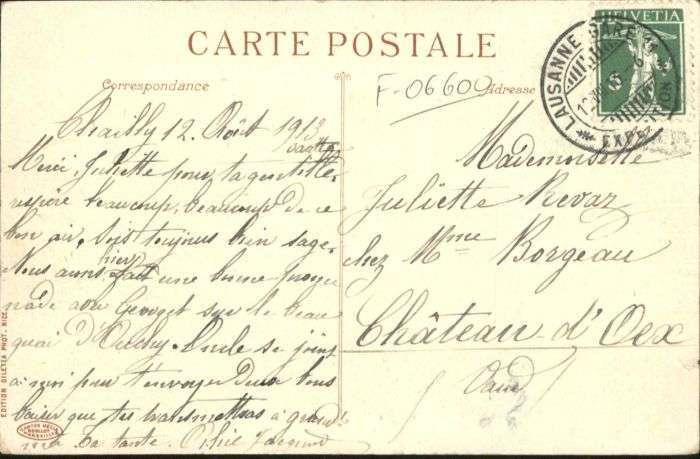 CARTE POSTALE
Correspondance
Adresse
F-06600
HELVETIA
5
LAUSANNE GARE
EXP. LET
Chailly 12 Août 1913
Merci, Juliette pour ta gentille
carte
respire beaucoup, beaucoup de ce
bon air, sois toujours bien sage.
Nous avons hier fait une bonne prome
nade avec Georget sur le beau
quai d'Ouchy. Oncle se joint
à moi pour t'envoyer deux bons
baiser que tu transmettras à grand'
Ta tante.
Mademoiselle
Juliette Revaz
chez Mme Borgeau
Château-d'Oex
Vaud
EDITION GILETTA PHOT. NICE